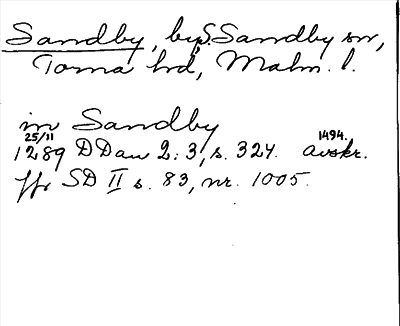 Sandby, by, S. Sandby sn,
Torna hd, Malm. l.
in Sandby
25/11 1494.
1289 DDan 2:3, s. 324. avskr.
jfr SD II s. 83, nr. 1005.